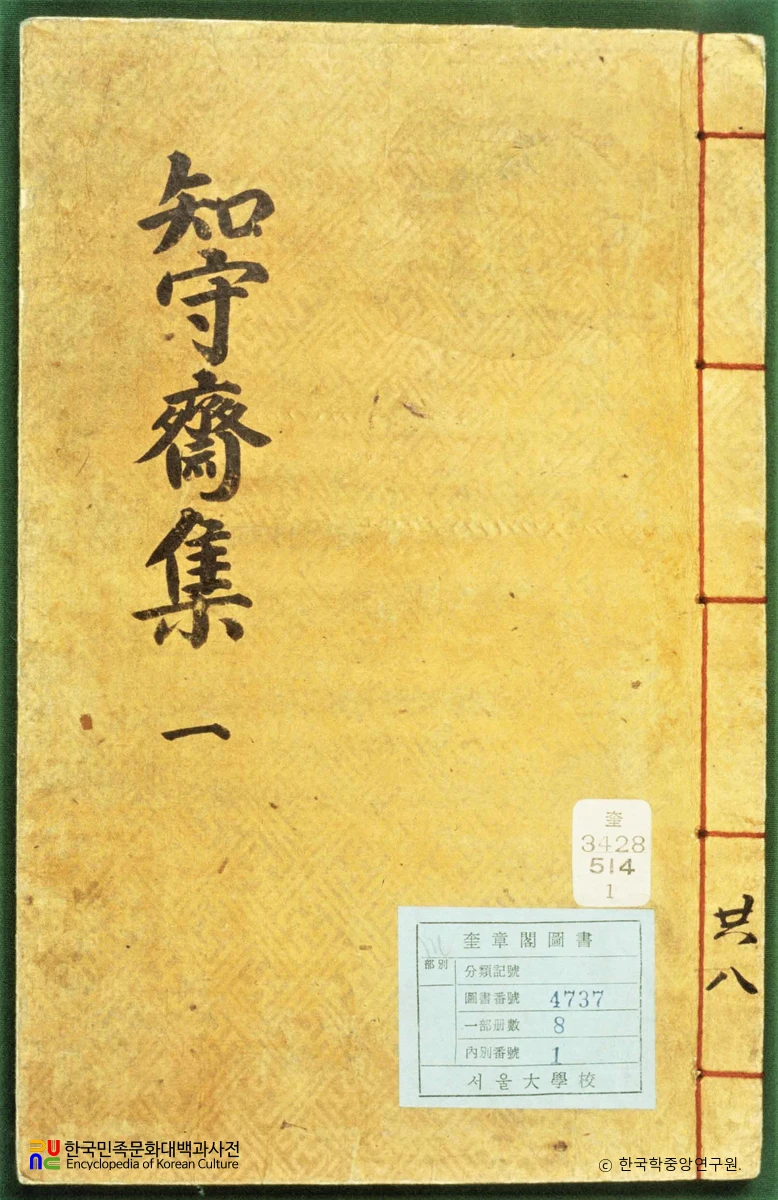 知守齋集 一
共八
奎
3428
514
1
奎章閣圖書
部別
分類記號
圖書番號 4737
一部册數 8
內別番號 1
서울大學校
한국민족문화대백과사전
Encyclopedia of Korean Culture
ⓒ 한국학중앙연구원.